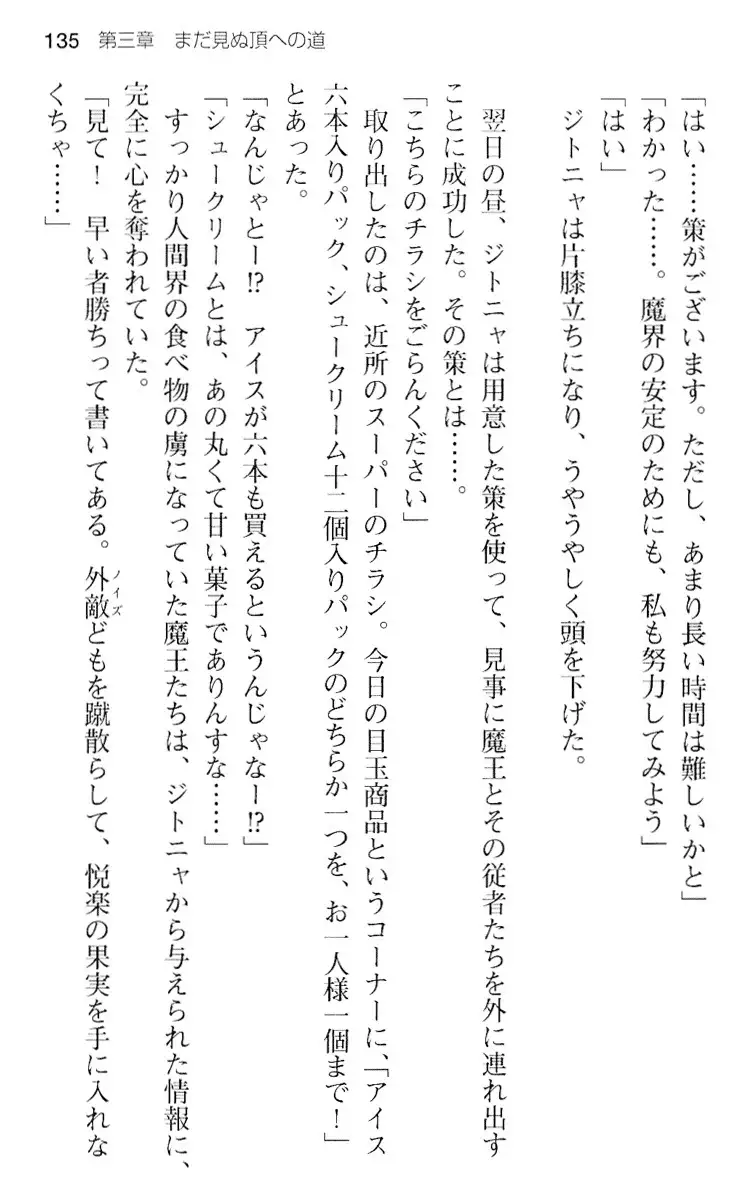 135 第三章　まだ見ぬ頂への道
「はい……策がございます。ただし、あまり長い時間は難しいかと」
「わかった……。魔界の安定のためにも、私も努力してみよう」
「はい」
　ジトニャは片膝立ちになり、うやうやしく頭を下げた。
　翌日の昼、ジトニャは用意した策を使って、見事に魔王とその従者たちを外に連れ出す
ことに成功した。その策とは……。
「こちらのチラシをごらんください」
　取り出したのは、近所のスーパーのチラシ。今日の目玉商品というコーナーに、「アイス
六本入りパック、シュークリーム十二個入りパックのどちらか一つを、お一人様一個まで！」
とあった。
「なんじゃとー⁉　アイスが六本も買えるというんじゃなー⁉」
「シュークリームとは、あの丸くて甘い菓子でありんすな……」
　すっかり人間界の食べ物の虜になっていた魔王たちは、ジトニャから与えられた情報に、
完全に心を奪われていた。
「見て！　早い者勝ちって書いてある。外敵どもを蹴散らして、悦楽の果実を手に入れな
ノイズ
くちゃ……」